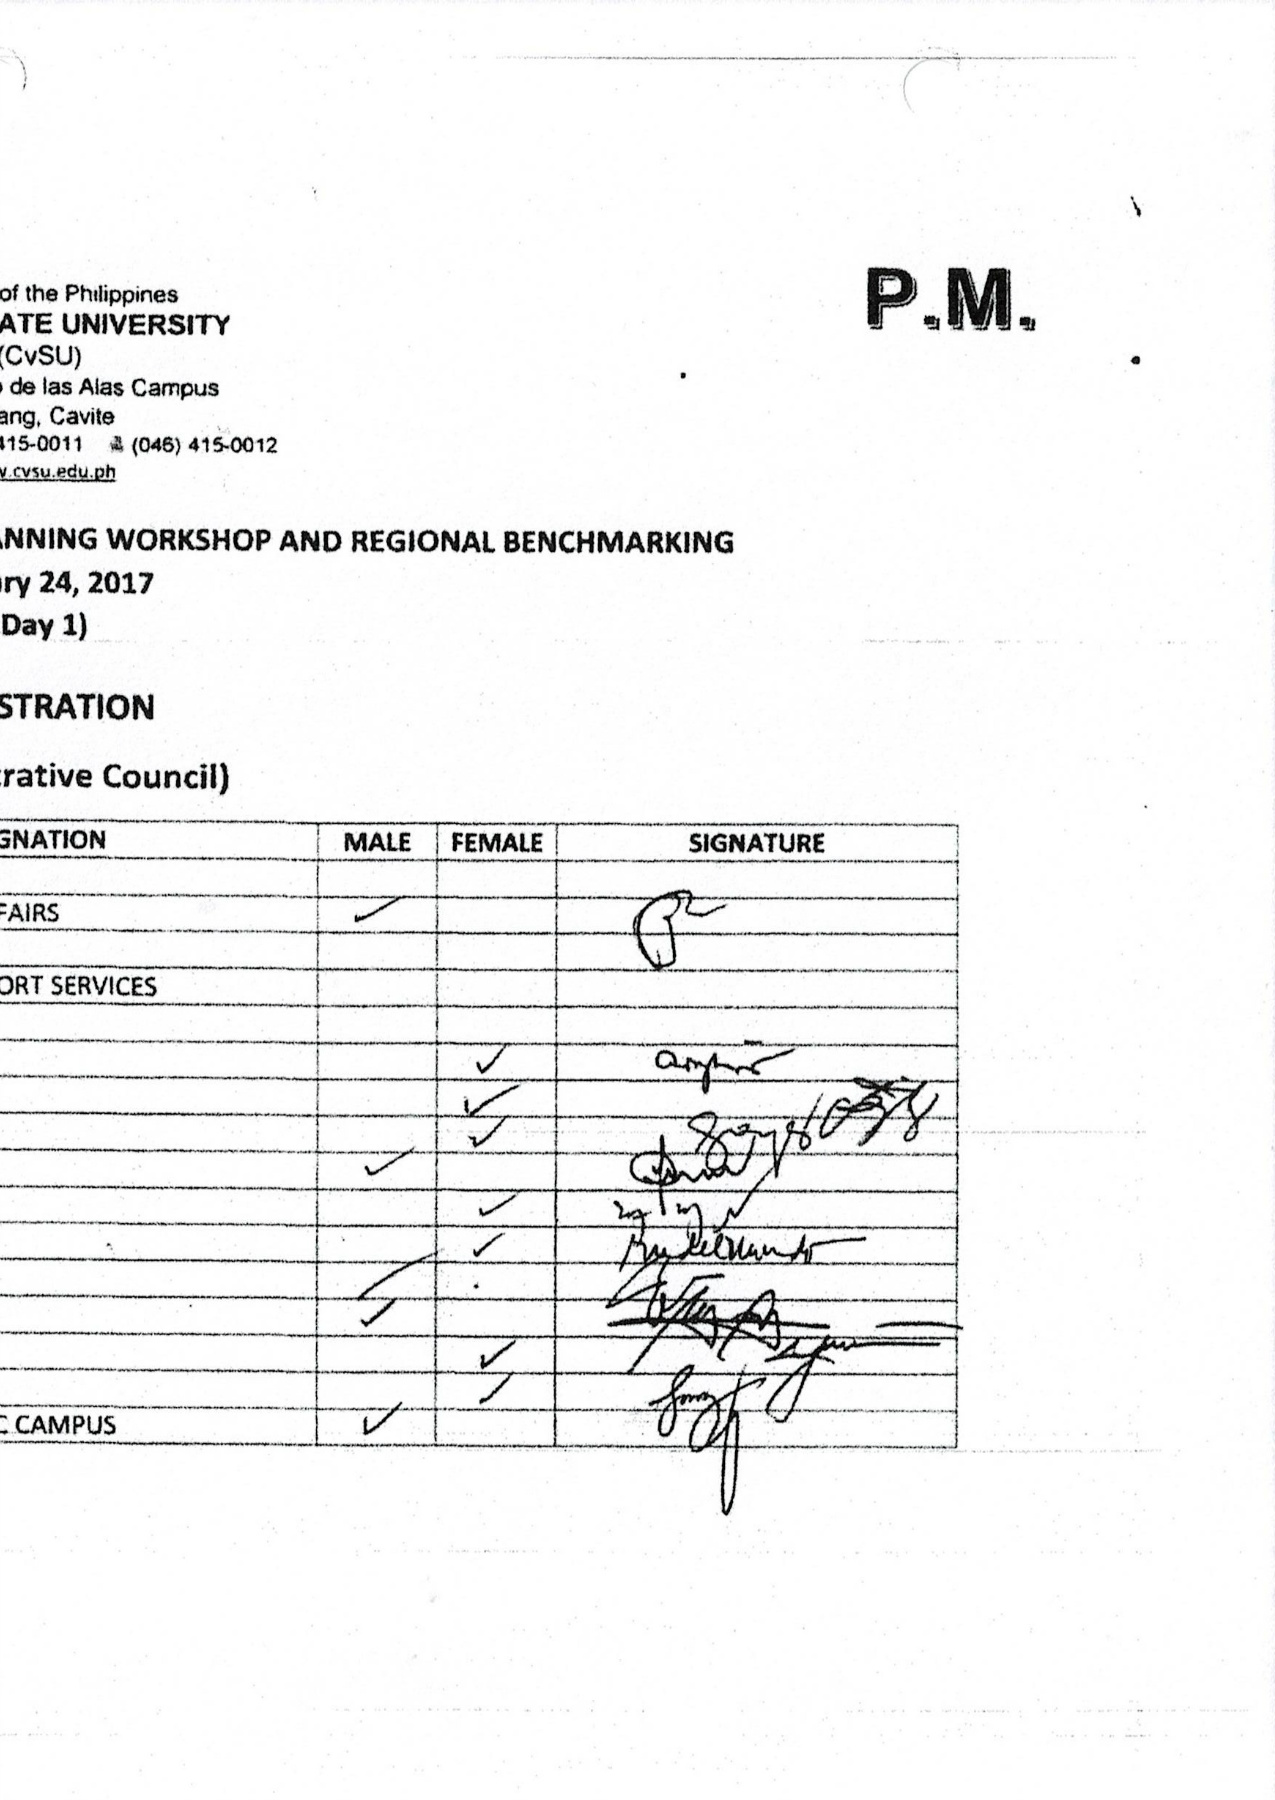 of the Philippines
P.M.
ATE UNIVERSITY
(CvSU)
de las Alas Campus
ang, Cavite
415-0011 (046) 415-0012
.cvsu.edu.ph
ANNING WORKSHOP AND REGIONAL BENCHMARKING
ry 24, 2017
Day 1)
STRATION
trative Council)
GNATION MALE FEMALE SIGNATURE
FAIRS
ORT SERVICES
C CAMPUS